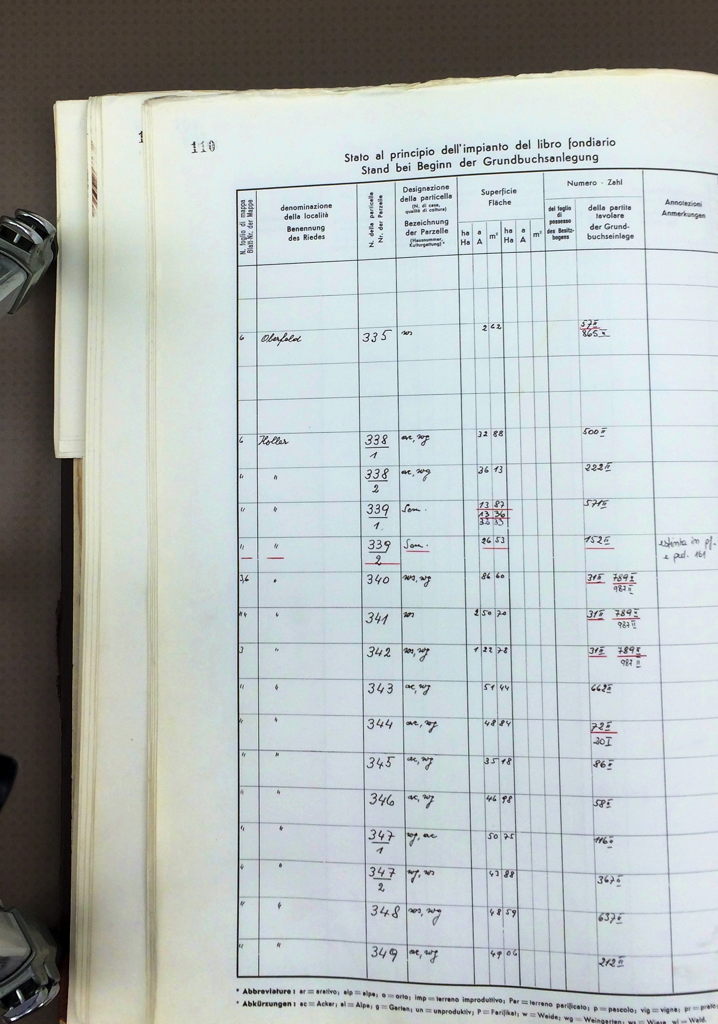 110
Stato al principio dell'impianto del libro fondiario
Stand bei Beginn der Grundbuchsanlegung
N. foglio di mappa
Blatt-Nr. der Mappe
denominazione
della località
Benennung
des Riedes
N. della particella
Nr. der Parzelle
Designazione
della particella
(N. di casa,
qualità di coltura)
Bezeichnung
der Parzelle
(Hausnummer,
Kulturgattung)*
Superficie
Fläche
ha a m² ha a m²
Ha A Ha A
Numero - Zahl
del foglio
di
possesso
des Besitz-
bogens
della partita
tavolare
der Grund-
buchseinlage
Annotazioni
Anmerkungen
6 Oberfeld 335 ws 2 62 57 II
865 II
6 Koller 338/1 ac, wg 32 88 500 II
" " 338/2 ac, wg 36 13 222 II
" " 339/1 13 87 571 II
13 36
" " 339/2 26 53 152 II
estinta in pf.
e ped. 161
3,6 " 340 ws, wg 86 60 31 II 789 II
982 II
" 341 ws 2 50 70 31 II 789 II
982 II
3 " 342 ws, wg 1 22 78 31 II 789 II
982 II
" " 343 ac, wg 51 44 662 II
" " 344 ac, wg 48 84 72 II
20 I
" " 345 ac, wg 35 18 86 II
" " 346 ac, wg 46 98 58 II
" " 347/1 wg, ac 50 75 116 II
" " 347/2 wg, ws 43 88 367 II
" " 348 ws, wg 48 59 637 II
" " 349 ac, wg 49 06 212 II
* Abbreviature: ar = arativo; alp = alpe; o = orto; imp = terreno improduttivo; Par = terreno parificato; p = pascolo; vig = vigna; pr = prato
* Abkürzungen: ac = Acker; al = Alpe; g = Garten; un = unproduktiv; P = Parifikat; w = Weide; wg = Weingarten; ws = Wiese; wl = Wald.